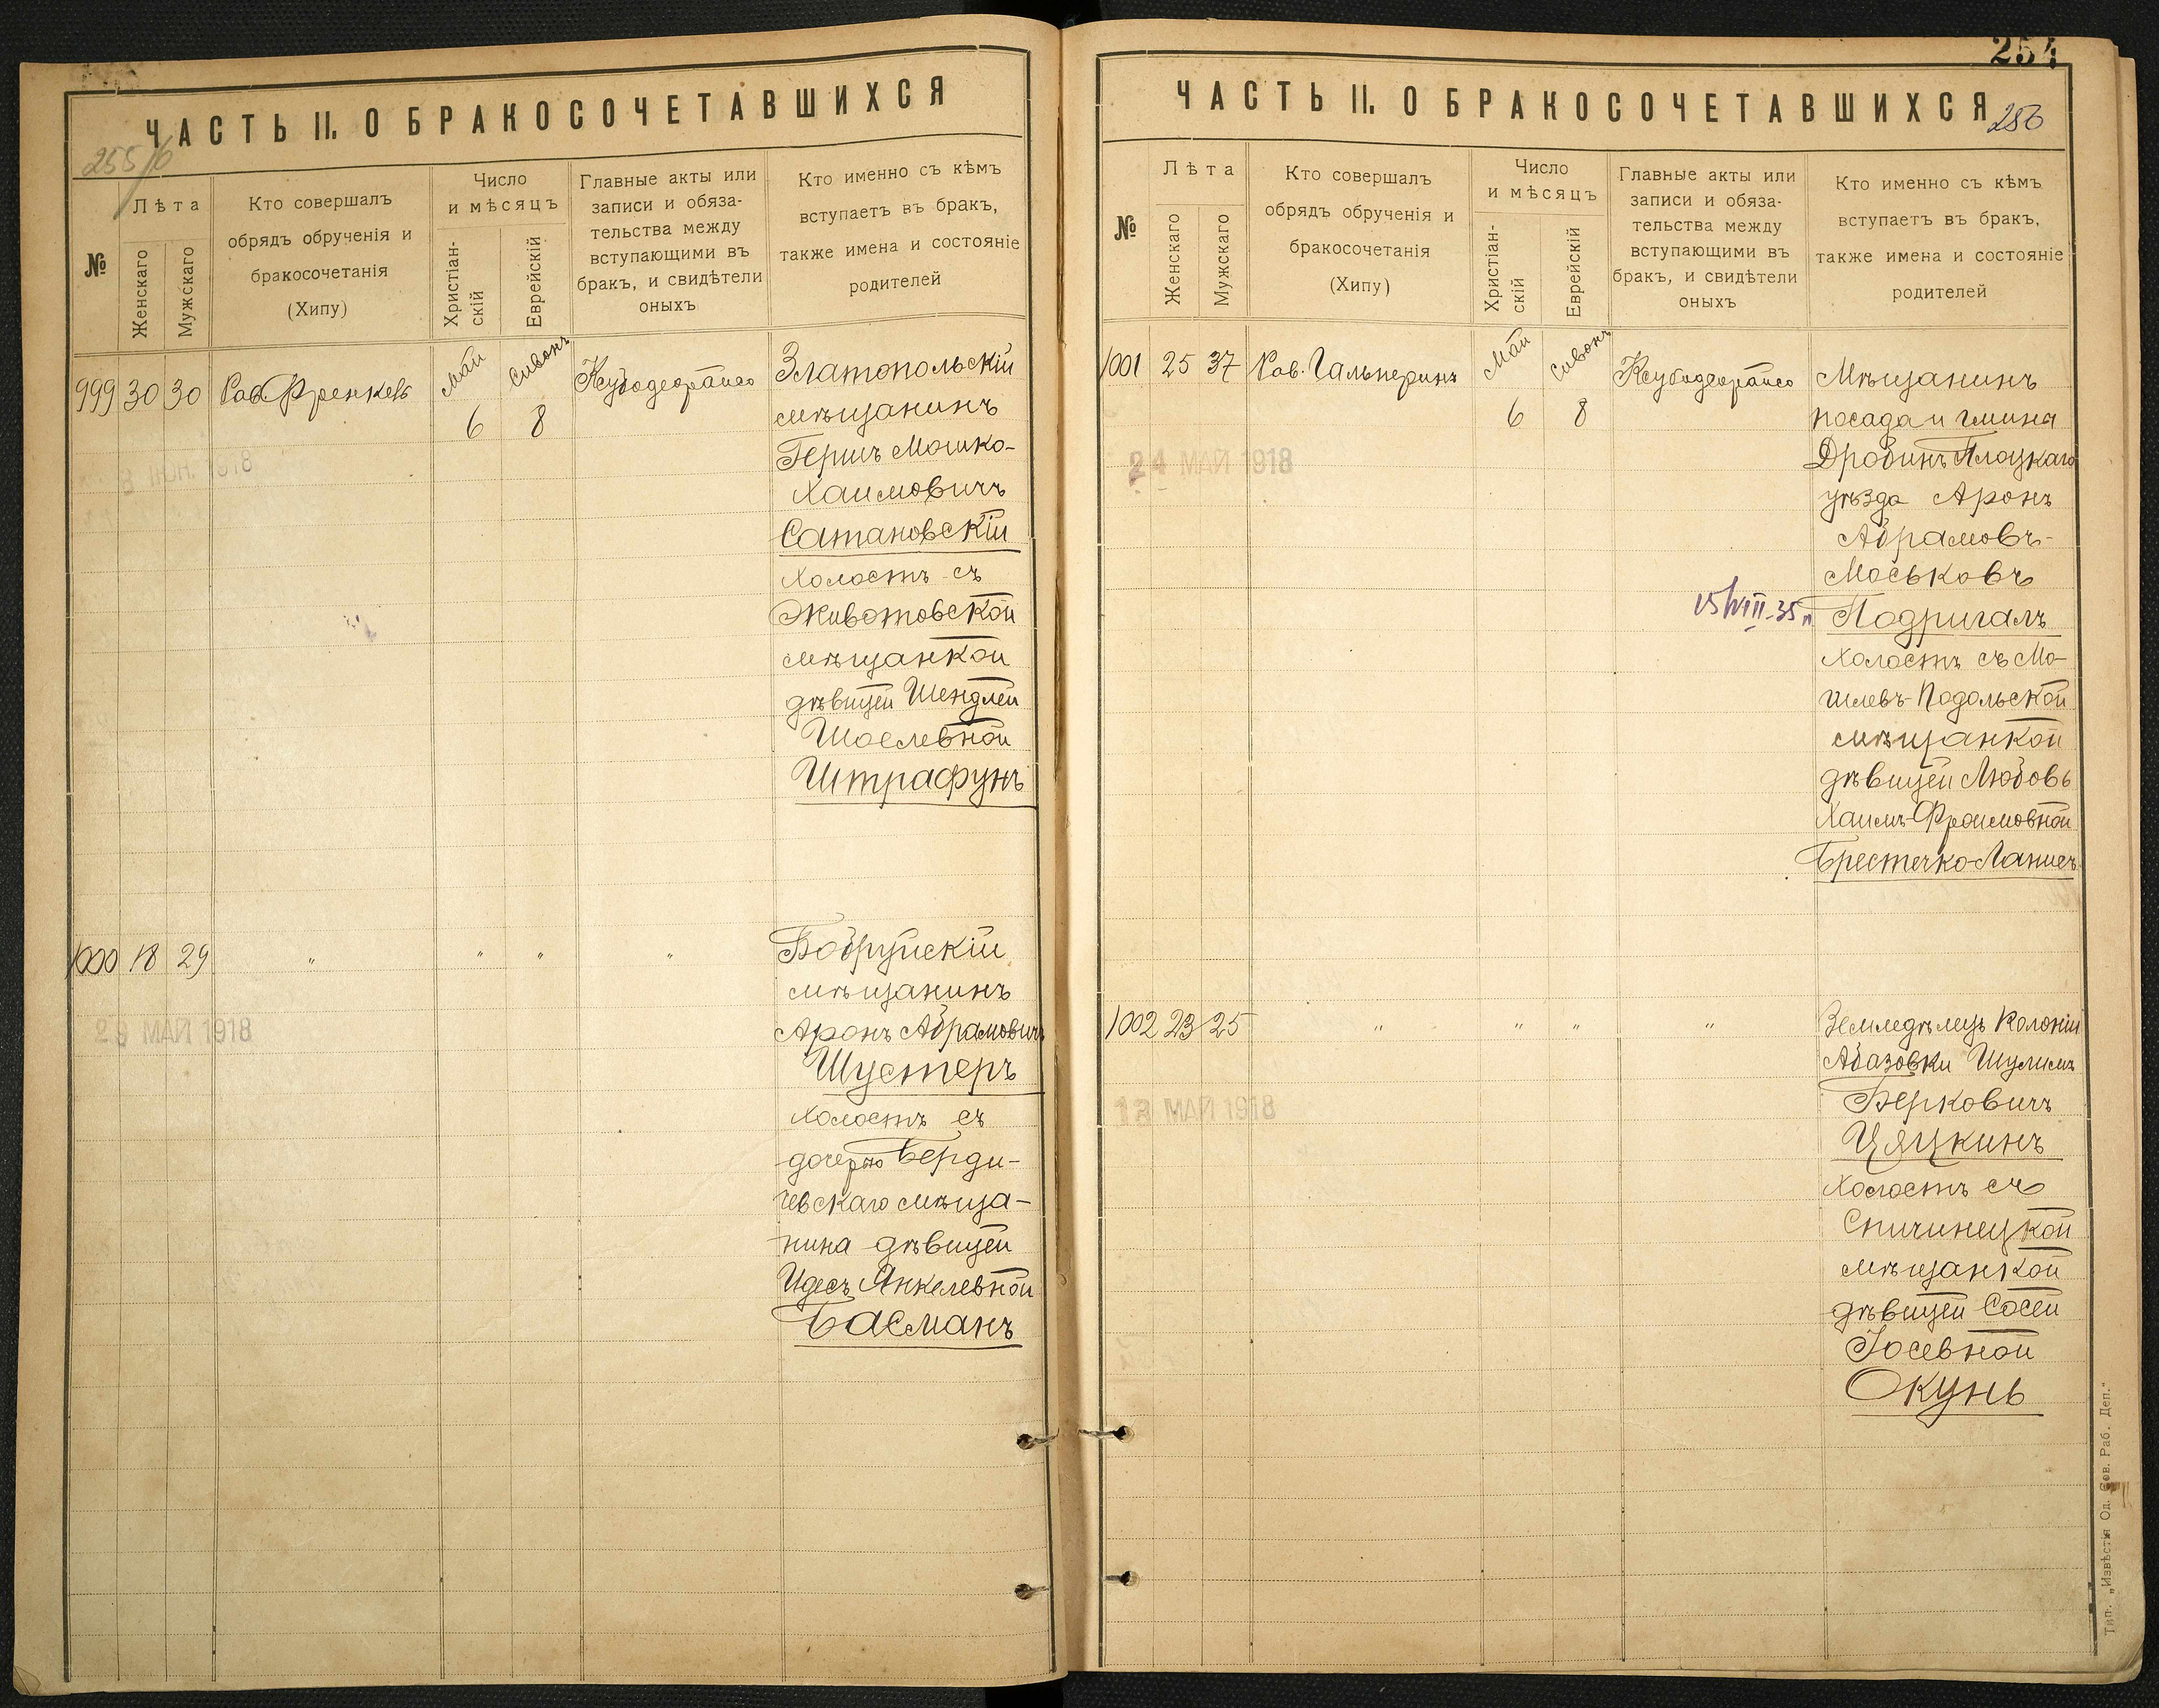 ЧАСТЬ II. О БРАКОСОЧЕТАВШИХСЯ
255/б
№
Лѣта
Женскаго
Мужскаго
Кто совершалъ
обрядъ обрученія и
бракосочетанія
(Хипу)
Число
и мѣсяцъ
Христіан-
скій
Еврейскій
Главные акты или
записи и обяза-
тельства между
вступающими въ
бракъ, и свидѣтели
оныхъ
Кто именно съ кѣмъ
вступаетъ въ бракъ,
также имена и состояніе
родителей
999 30 30 Рав. Френкель Май Сивонъ
6 8
Златопольскій
мѣщанинъ
Гершъ Мошко-
Хаимовичъ
Сатановскій
холостъ съ
Животовской
мѣщанкой
дѣвицей Шендлей
Шоелевной
Штрафунъ
8 ІЮН. 1918
1000 18 29 " " " "
Бобруйскій
мѣщанинъ
Аронъ Абрамовичъ
Шустеръ
холостъ съ
дочерью Берди-
чевскаго мѣща-
нина дѣвицей
Идесъ Янкелевной
Басманъ
29 МАЙ 1918
254
ЧАСТЬ II. О БРАКОСОЧЕТАВШИХСЯ
256
№
Лѣта
Женскаго
Мужскаго
Кто совершалъ
обрядъ обрученія и
бракосочетанія
(Хипу)
Число
и мѣсяцъ
Христіан-
скій
Еврейскій
Главные акты или
записи и обяза-
тельства между
вступающими въ
бракъ, и свидѣтели
оныхъ
Кто именно съ кѣмъ
вступаетъ въ бракъ,
также имена и состояніе
родителей
1001 25 37 Рав. Гальперинъ Май Сивонъ
6 8
Мѣщанинъ
посада и гмины
Дробинъ Плоцкаго
уѣзда Аронъ
Абрамовъ-
Моськовъ
Подригалъ
холостъ съ Мо-
гилевъ-Подольской
мѣщанкой
дѣвицей Любовь
Хаимъ-Фроимовной
Брестечко-Ланцеъ
24 МАЙ 1918
15/VIII-35
1002 23 25 " " " "
Земледѣлецъ колоніи
Абазовки Шулимъ
Берковичъ
Цяцкинъ
холостъ съ
Спичинецкой
мѣщанкой
дѣвицей Сосей
Іосевной
Окунь
13 МАЙ 1918
Тип. „Извѣстія Од. Сов. Раб. Деп."